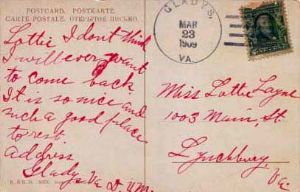 POSTCARD. POSTKARTE.
CARTE POSTALE. ОТКРЫТОЕ ПИСЬМО.
GLADYS
MAR
23
1909
VA.
Lottie I dont think
I will ever want
to come back
It is so nice and
such a good place
to rest.
address
Gladys Va
Miss Lottie Layne
1003 Main, St
Lynchburg
Va